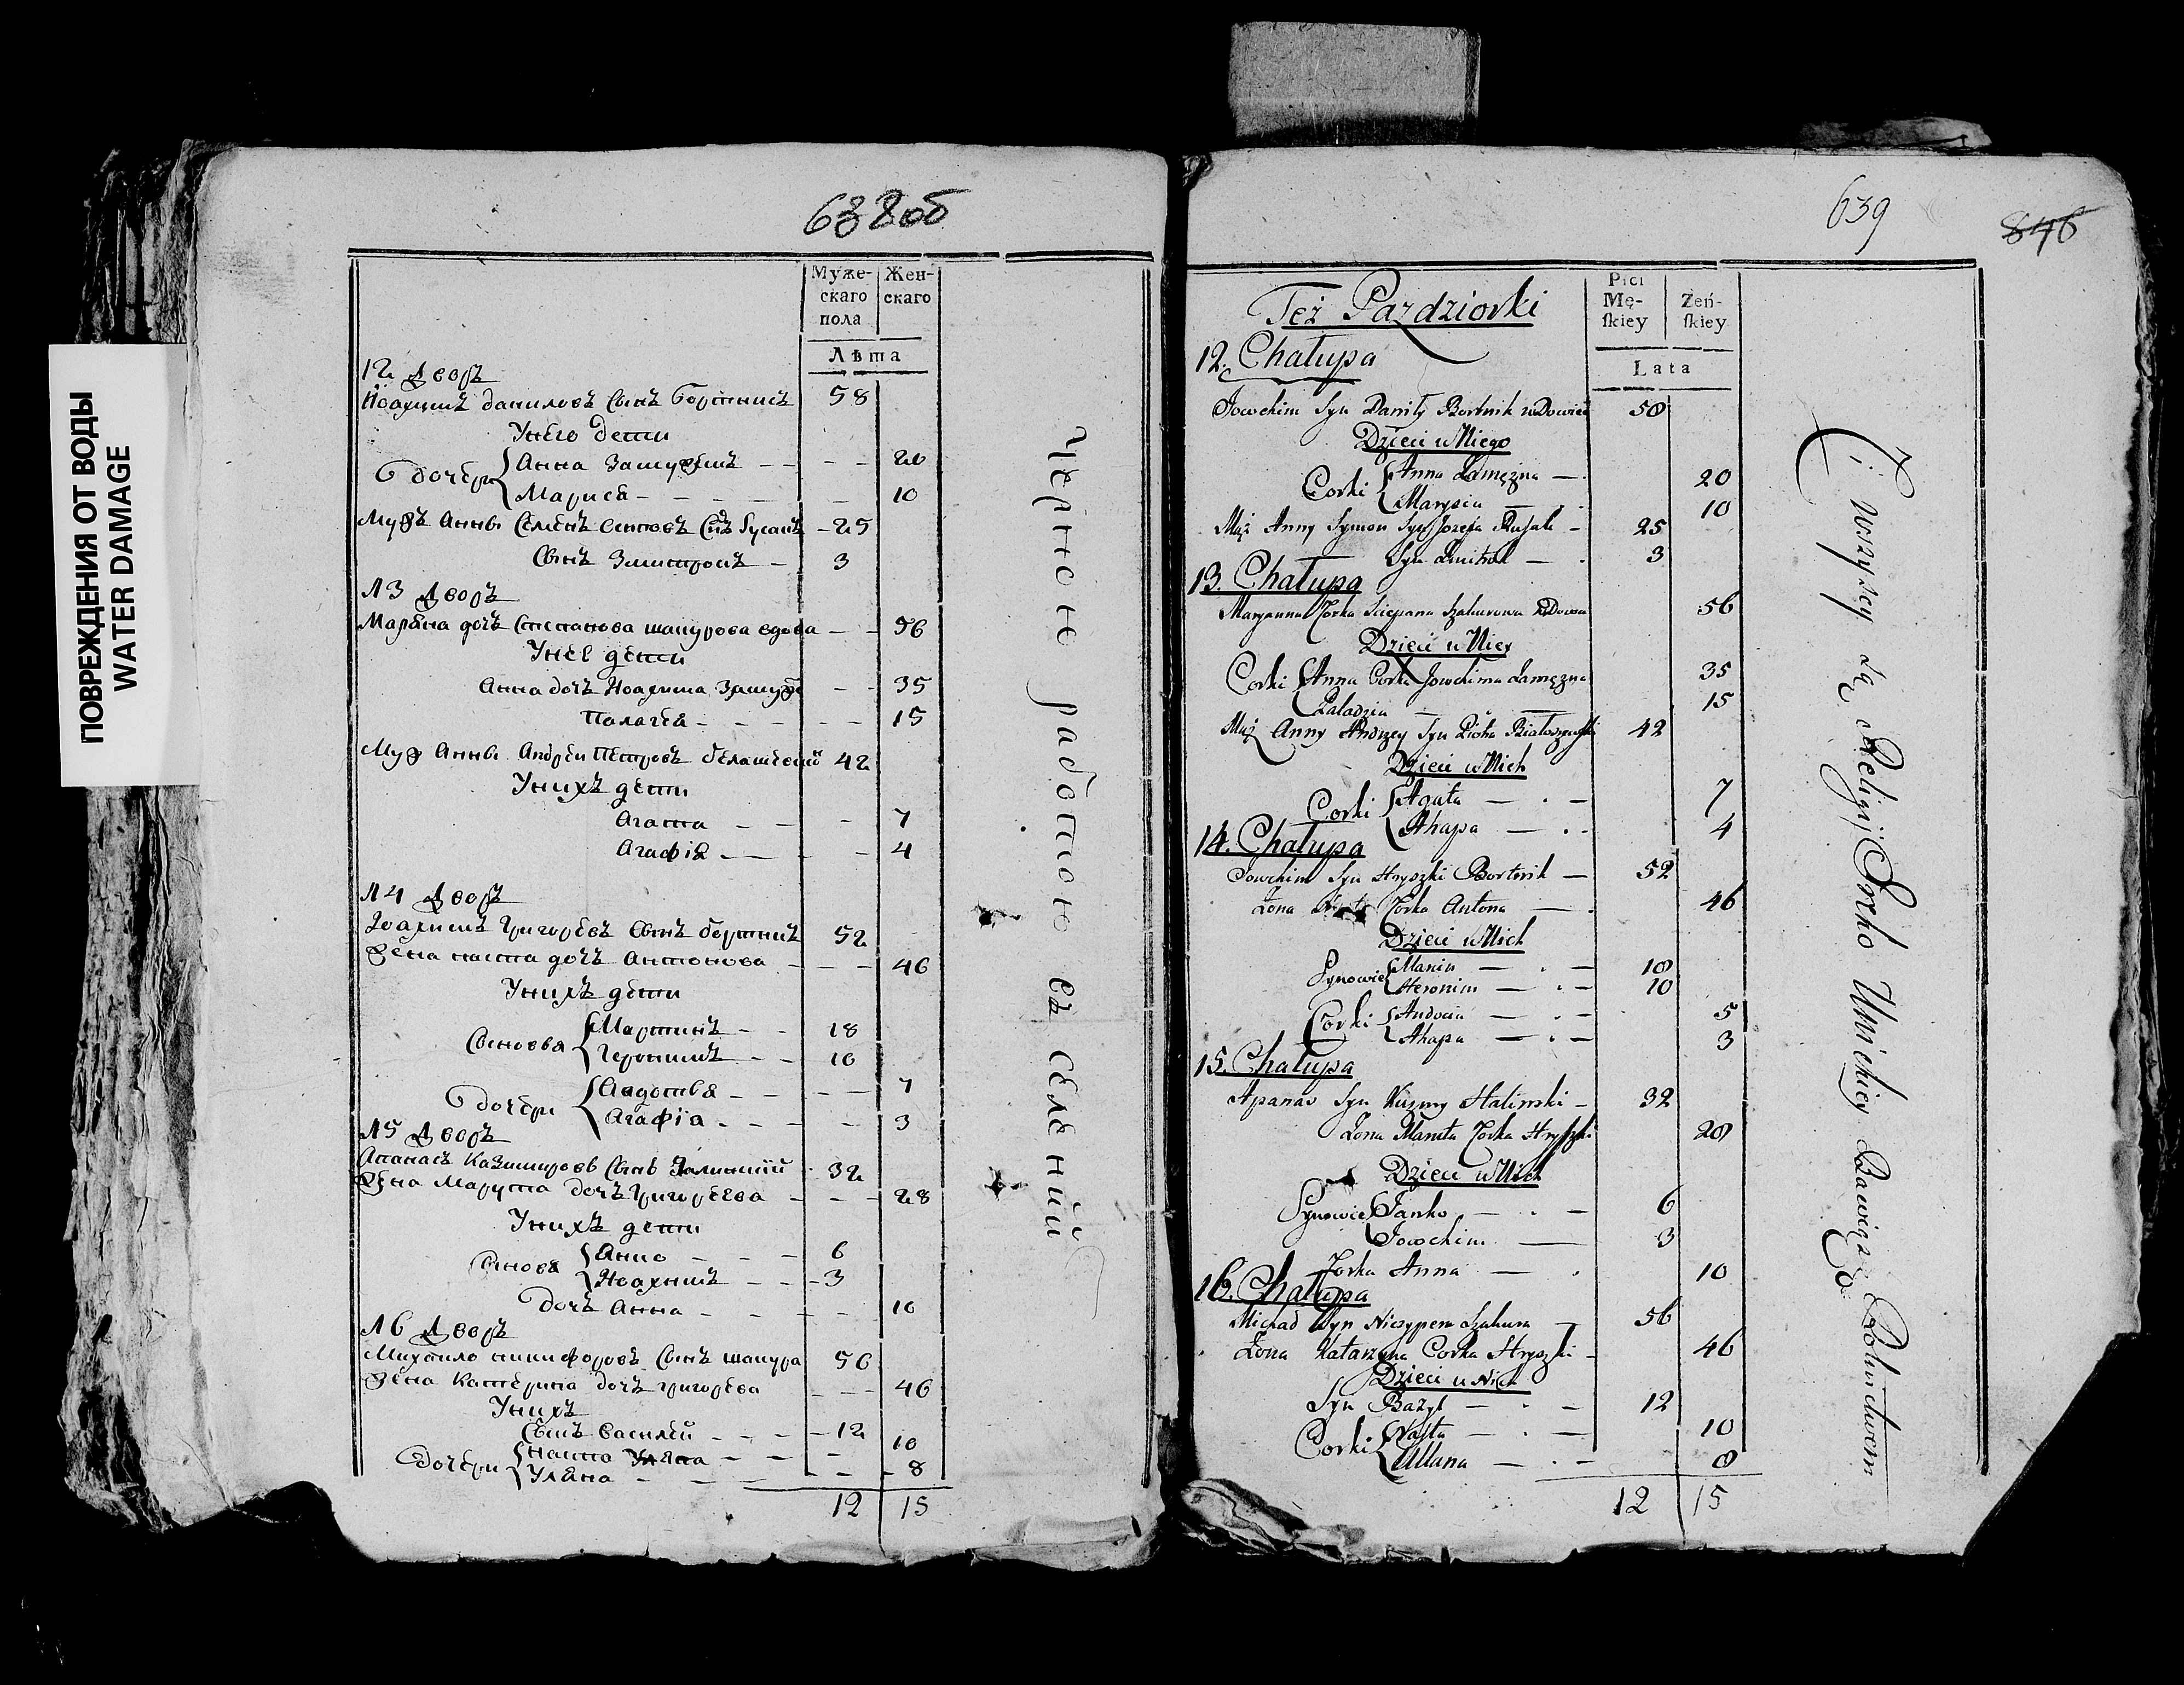 ПОВРЕЖДЕНИЯ ОТ ВОДЫ
WATER DAMAGE
638об
Муже-
скаго
пола
Жен-
скаго
Лѣта
12 Дворъ
Иоахимъ даниловъ Сынъ бортникъ 58
Унего дети
дочери Анна Замужемъ 20
Марися 10
Мужъ Анны Семенъ 25
Сынъ Змитрокъ 3
13 Дворъ
Маряна дочь Степанова шапурова вдова 56
Унее дети
Анна дочь Иоахима Замуж 35
Палагея 15
Муж Анны Андреи Петровъ 42
Унихъ дети
Агата 7
Агафія 4
14 Дворъ
Иоахимъ Григорьевъ Сынъ бортникъ 52
жена наста дочь Антонова 46
Унихъ дети
Сыновья Мартинъ 18
Геронимъ 10
дочери Авдотья
Агафія 3
15 Дворъ
Апанасъ Казимировъ Сынъ Галинский 32
жена Марута дочь Григорьева 28
Унихъ дети
Сыновя Янко 6
Иоахимъ 3
дочь Анна 10
16 Дворъ
Михайло никифоровъ Сынъ шапура 56
жена Катерина дочь григорьева 46
Унихъ
Сынъ Василей 12
дочери наста 10
Уляна 8
12 15
Черною работою съ селеній
639
846
Też Pazdziorki
Płci
Mę-
skiey
Żeń-
skiey
Lata
12. Chałupa
Jowchim Syn Daniły Bortnik wDowiec 58
Dzieci uNiego
Corki Anna Zamężna 20
Marysia 10
Mąż Anny Symon Syn Jozefa 25
Syn Dmitrok 3
13. Chałupa
Maryanna Corka Sciepana Szakurowa wDowa 56
Dzieci uNiey
Corki Anna Corka Jowchima Zamężna 35
Paladzia 15
Mąż Anny Andrzey Syn Piotra 42
Dzieci uNich
Corki Agata 7
Ahapa 4
14. Chałupa
Jowchim Syn Hryszki Bortnik 52
Żona Corka Antona 46
Dzieci uNich
Synowie 18
Heronim 10
Corki Audocia 5
Ahapa 3
15. Chałupa
Apanas Syn Kuzmy Halinski 32
Żona Maruta Corka Hryszki 28
Dzieci uNich
Synowie Janko 6
Jowchim 3
Corka Anna 10
16. Chałupa
Michał Syn Niczypera Szakura 56
Żona Katarzyna Corka Hryszki 46
Dzieci u Nich
Syn Bazyl 12
Corki Nasta 10
Ullana 8
12 15
Ci wszyscy są Religij Greko Unickiey Bawią się Rolnictwem